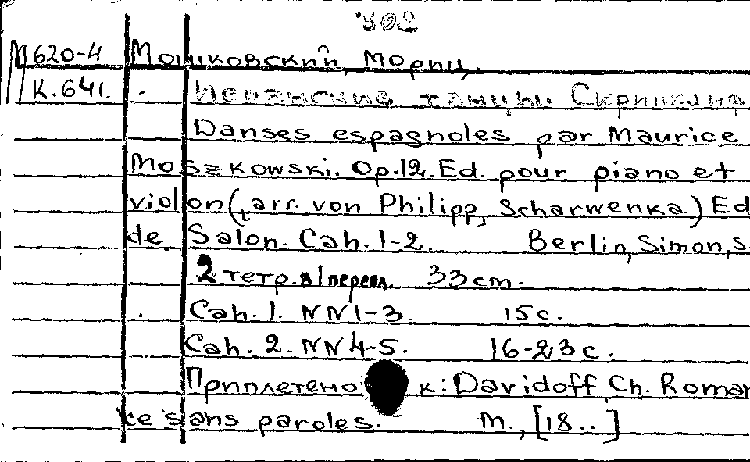 302
М620-4 Мошковский, Мориц.
К.641. Испанские танцы. Скрипка и ф
Danses espagnoles par Maurice
Moszkowski. Op.12. Ed. pour piano et
violon (arr. von Philipp, Scharwenka) Ed
de Salon. Cah. 1-2. Berlin, Simon, s.
2 тетр. в 1 перепл. 33 cm.
Cah. 1. NN 1-3. 15 с.
Cah. 2. NN 4-5. 16-23 с.
Приплетено к: Davidoff, Ch. Roman
ce sans paroles. М., [18..]